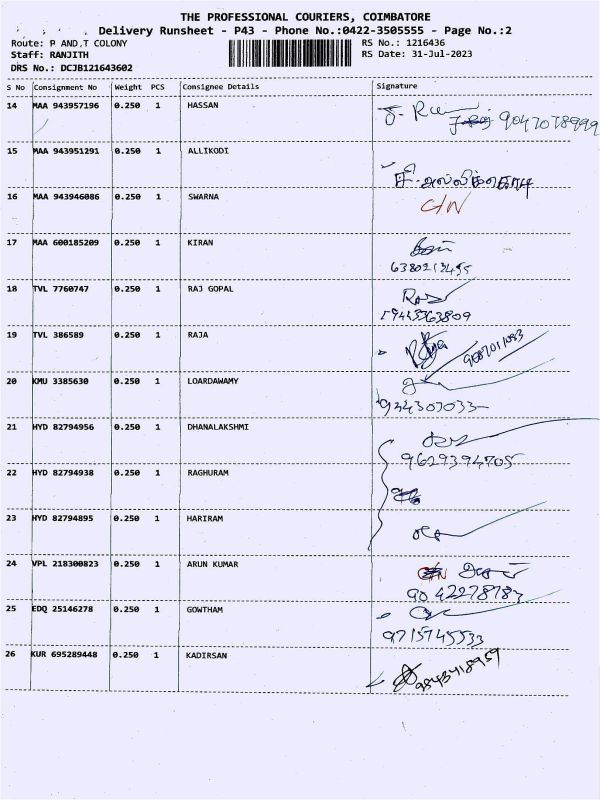 THE PROFESSIONAL COURIERS, COIMBATORE
Delivery Runsheet - P43 - Phone No.:0422-3505555 - Page No.:2
Route: P AND.T COLONY RS No.: 1216436
Staff: RANJITH RS Date: 31-Jul-2023
DRS No.: DCJB121643602
S No Consignment No Weight PCS Consignee Details Signature
14 MAA 943957196 0.250 1 HASSAN
9047078999
15 MAA 943951291 0.250 1 ALLIKODI
16 MAA 943946086 0.250 1 SWARNA C/N
17 MAA 600185209 0.250 1 KIRAN
18 TVL 7760747 0.250 1 RAJ GOPAL
19 TVL 386589 0.250 1 RAJA
20 KMU 3385630 0.250 1 LOARDAWAMY
21 HYD 82794956 0.250 1 DHANALAKSHMI
9629394705
22 HYD 82794938 0.250 1 RAGHURAM
23 HYD 82794895 0.250 1 HARIRAM
24 VPL 218300823 0.250 1 ARUN KUMAR
9042278783
25 EDQ 25146278 0.250 1 GOWTHAM
9715745533
26 KUR 695289448 0.250 1 KADIRSAN
9843418959